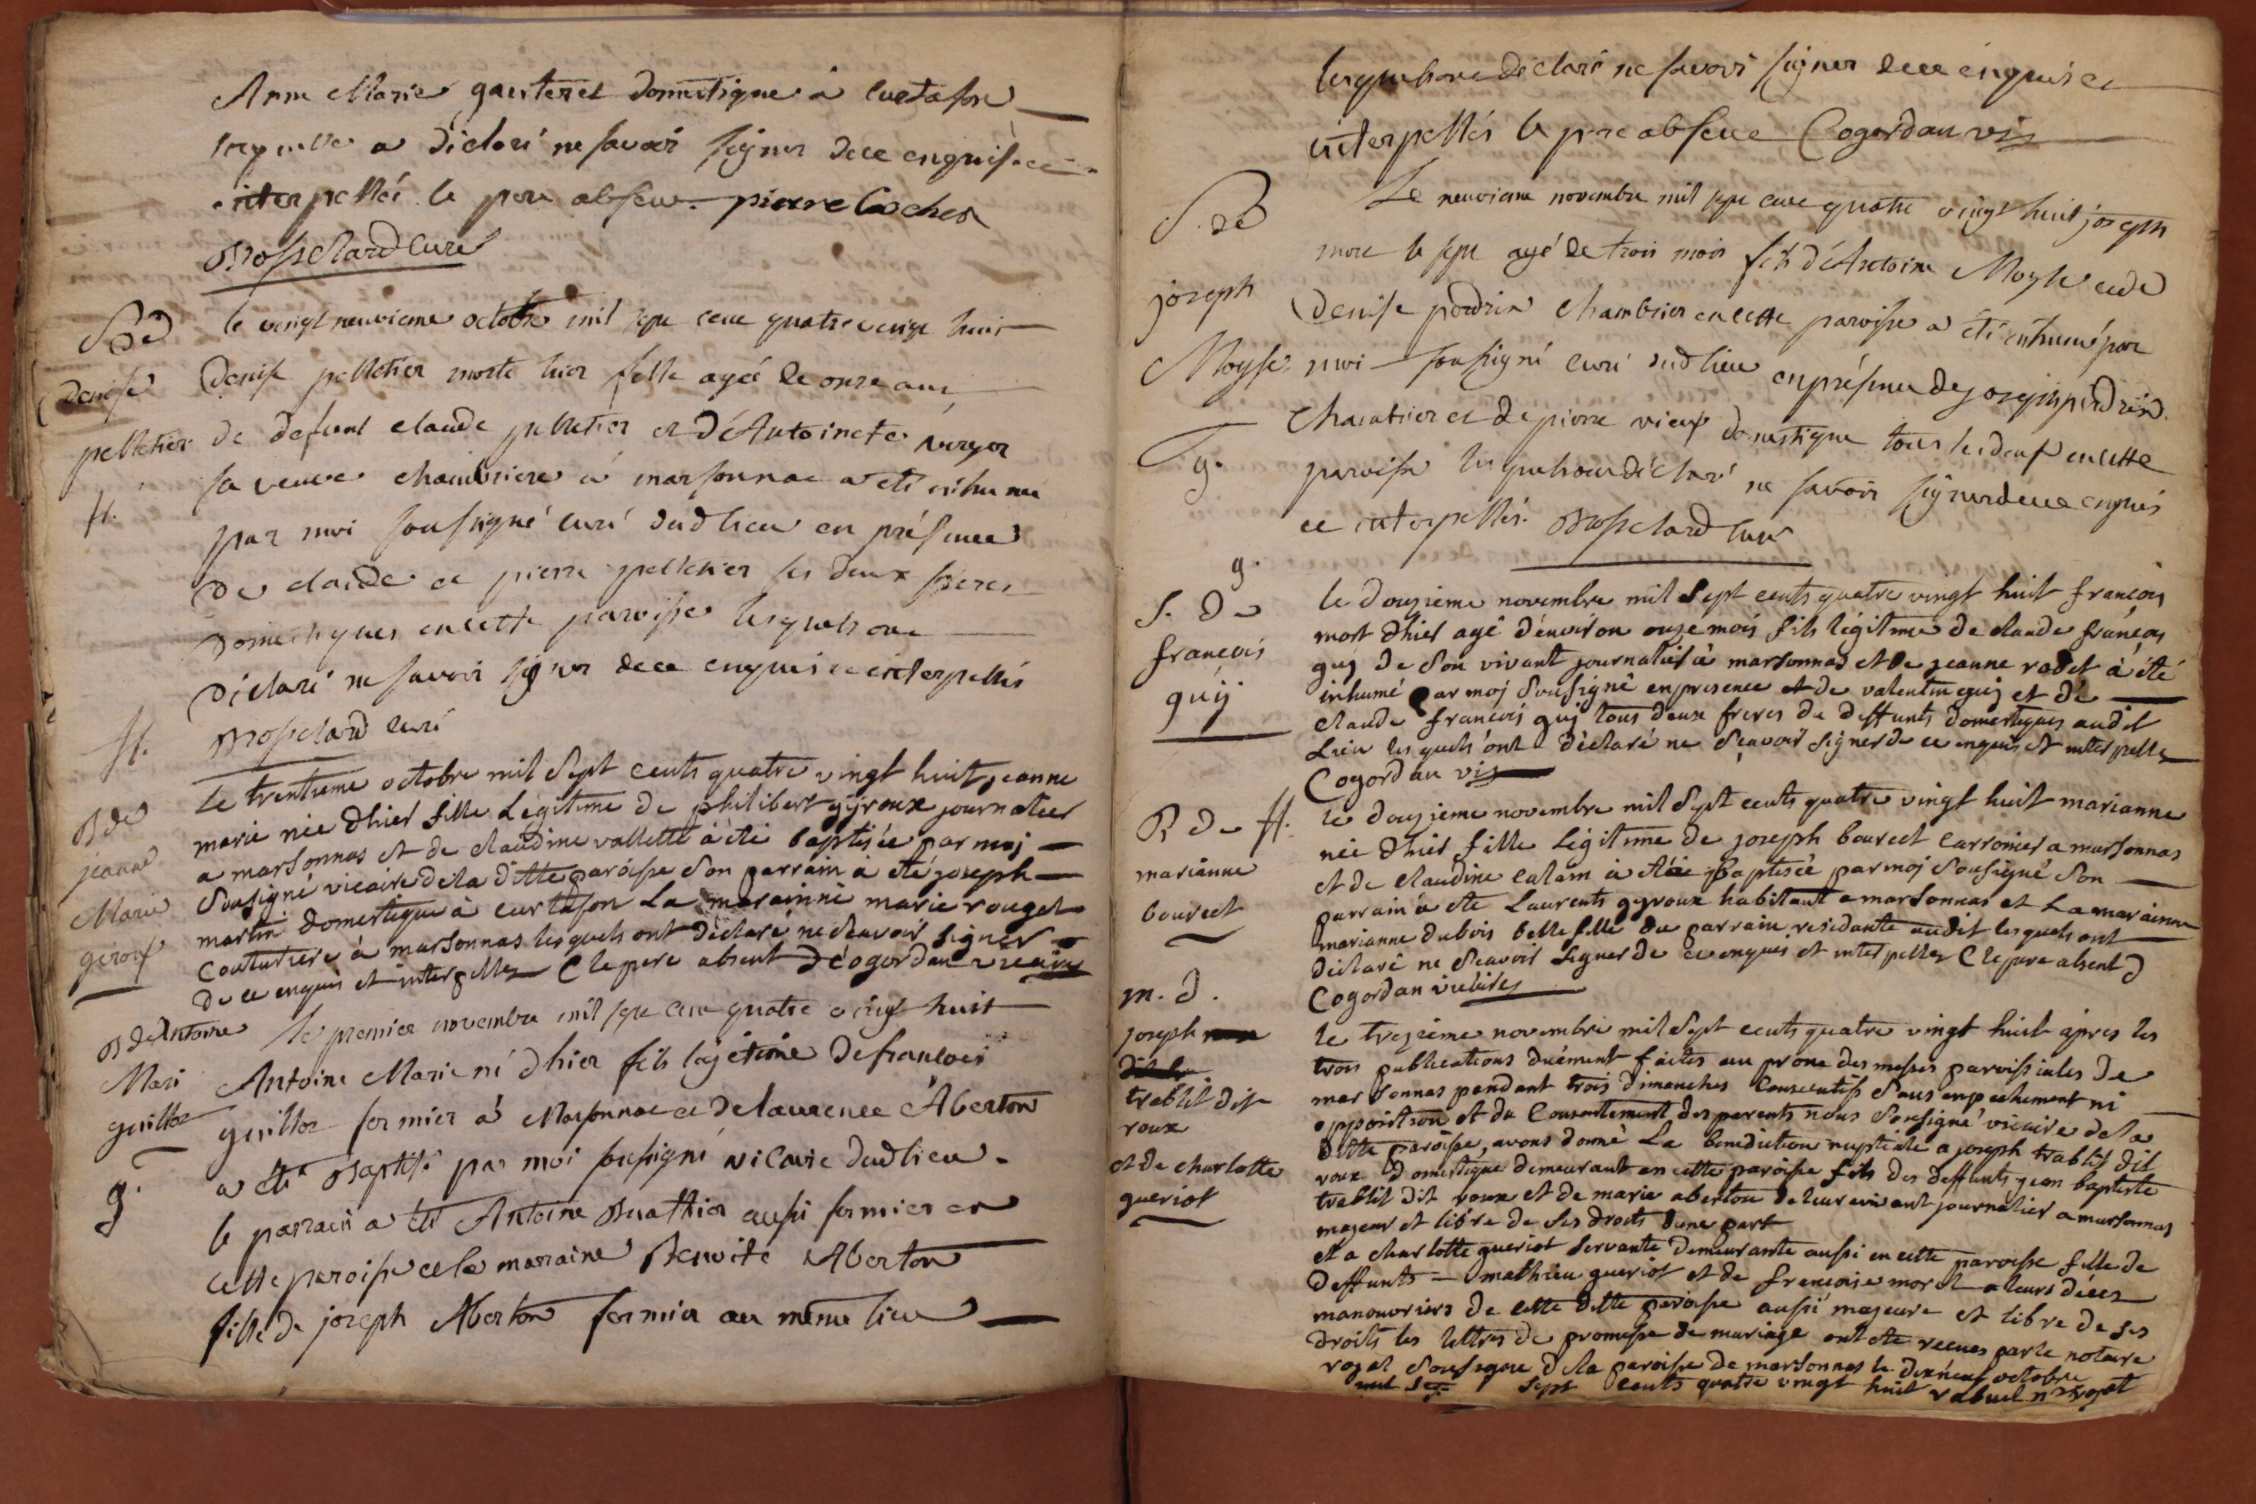 Anne Marie gauteret domestique à curtafon
laquelle a déclaré ne savoir signer de ce enquise et
interpellée le pere absent pierre Cochet
Brosselard Curé
S. de
denise
pelletier
H.
le vingt neuvieme octobre mil sept cent quatre vingt huit
Denise pelletier morte hier fille agée de onze ans
de defunt claude pelletier et d'Antoinete
sa veuve chambriere à marsonnac a été inhumée
par moi soussigné curé dud lieu en présence
de claude et pierre pelletier ses deux freres
domestiques en cette paroisse lesquels ont
déclaré ne savoir signer de ce enquis et interpellés
Brosselard curé
H.
B de
jeanne
Marie
giroux
le trentieme octobre mil sept cents quatre vingt huit jeanne
marie née dhier fille Légitime de philibert gyroux journalier
a marsonnas et de claudine vallette à été baptisée par moj
Sousigné vicaire de la ditte paroisse Son parrain à été joseph
martin domestique à curtafon La marainne marie rouget
Couturiere à marsonnas lesquels ont déclaré ne scavoir signer
de ce enquis et interpelles C le pere absent D Cogordan vicaire
B d'Antoine
Mari
guillot
g.
le premier novembre mil sept cent quatre vingt huit
Antoine Marie né d hier fils lajetime de francois
guillot fermier à Marsonnac et de laurence Aberton
a été Baptisé par moi soussigné vicaire dud lieu.
le parrain a été Antoine Buathier aussi fermier en
cette paroisse et la marraine Benoite Aberton
fille de joseph Aberton fermier au même lieu
lesquels ont déclaré ne savoir signer de ce enquis et
interpellés le pere absent Cogordan vis
S. de
joseph
Moyse
g.
Le neuvieme novembre mil sept cent quatre vingt huit joseph
mort le sept agé de trois mois fils d'Antoine Moyse et de
Denise perdrix chambrier en cette paroisse a été inhumé par
moi soussigné curé dud lieu en présence de joseph perdrix
Chambrier et de pierre vieux domestique tous les deux en cette
paroisse lesquels ont déclaré ne savoir signer de ce enquis
et interpellés. Brosselard Curé
g.
S. De
francois
guÿ
le douzieme novembre mil Sept cents quatre vingt huit francois
mort dhier agé d'environ onze mois fils légitime de claude françois
guj de Son vivant journalier à marsonnas et de jeanne rodet à été
inhumé par moj Sousigné en presence et de valentin guj et de
claude francois guj tous deux freres du deffunts domestiques audit
Lieu les quels ont déclaré ne Scavoir signer de ce enquis et interpelles
Cogordan vis
B De H.
marianne
bourcet
le douzieme novembre mil Sept cents quatre vingt huit marianne
née dhier fille Légitime de joseph bourcet carronier a marsonnas
et de claudine calam à étée Baptisée par moj Sousigné Son
parrain à été Laurents gyroux habitant a marsonnas et La marainne
marianne dubois belle fille du parrain residante audit lesquels ont
déclaré ne Scavoir Signer de ce enquis et interpelles C le pere absent D
Cogordan vicaire
m. d.
joseph
trablit dit
roux
et de charlotte
gueriot
le treizieme novembre mil Sept cents quatre vingt huit apres les
trois publications duement faites au prone des messes paroissiales de
marsonnas pendant trois dimanches Consecutifs Sans empechement ni
opposition et du Consentement des parents nous Sousigné vicaire de la
ditte paroisse, avons donné La benediction nuptiale a joseph trablit dit
roux domestique demeurant en cette paroisse fils des deffunts jean baptiste
trablit dit roux et de marie aberton de leur vivant journalier a marsonnas
majeur et libre de Ses droits d'une part
et a charlotte gueriot Servante demeurante aussi en cette paroisse fille de
deffunts mathieu gueriot et de francoise morel a leurs décès
manouvriers de cette ditte paroisse aussi majeure et libre de ses
droits les lettres de promesse de mariage ont été recues par le notaire
royal Sousigné de la paroisse de marsonnas le dixneuf octobre
mil sept cents quatre vingt huit rabuel nre royal